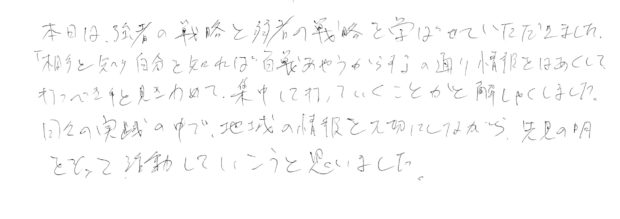 本日は、強者の戦略と弱者の戦略を学ばせていただきました。
「相手を知り自分を知れば百戦あやうからず」の通り情報をはあくして
打つべき手を見きわめて、集中して打っていくことがと解しゃくしました。
日々の実践の中で、地域の情報を大切にしながら、先見の明
をもって活動していこうと思いました。